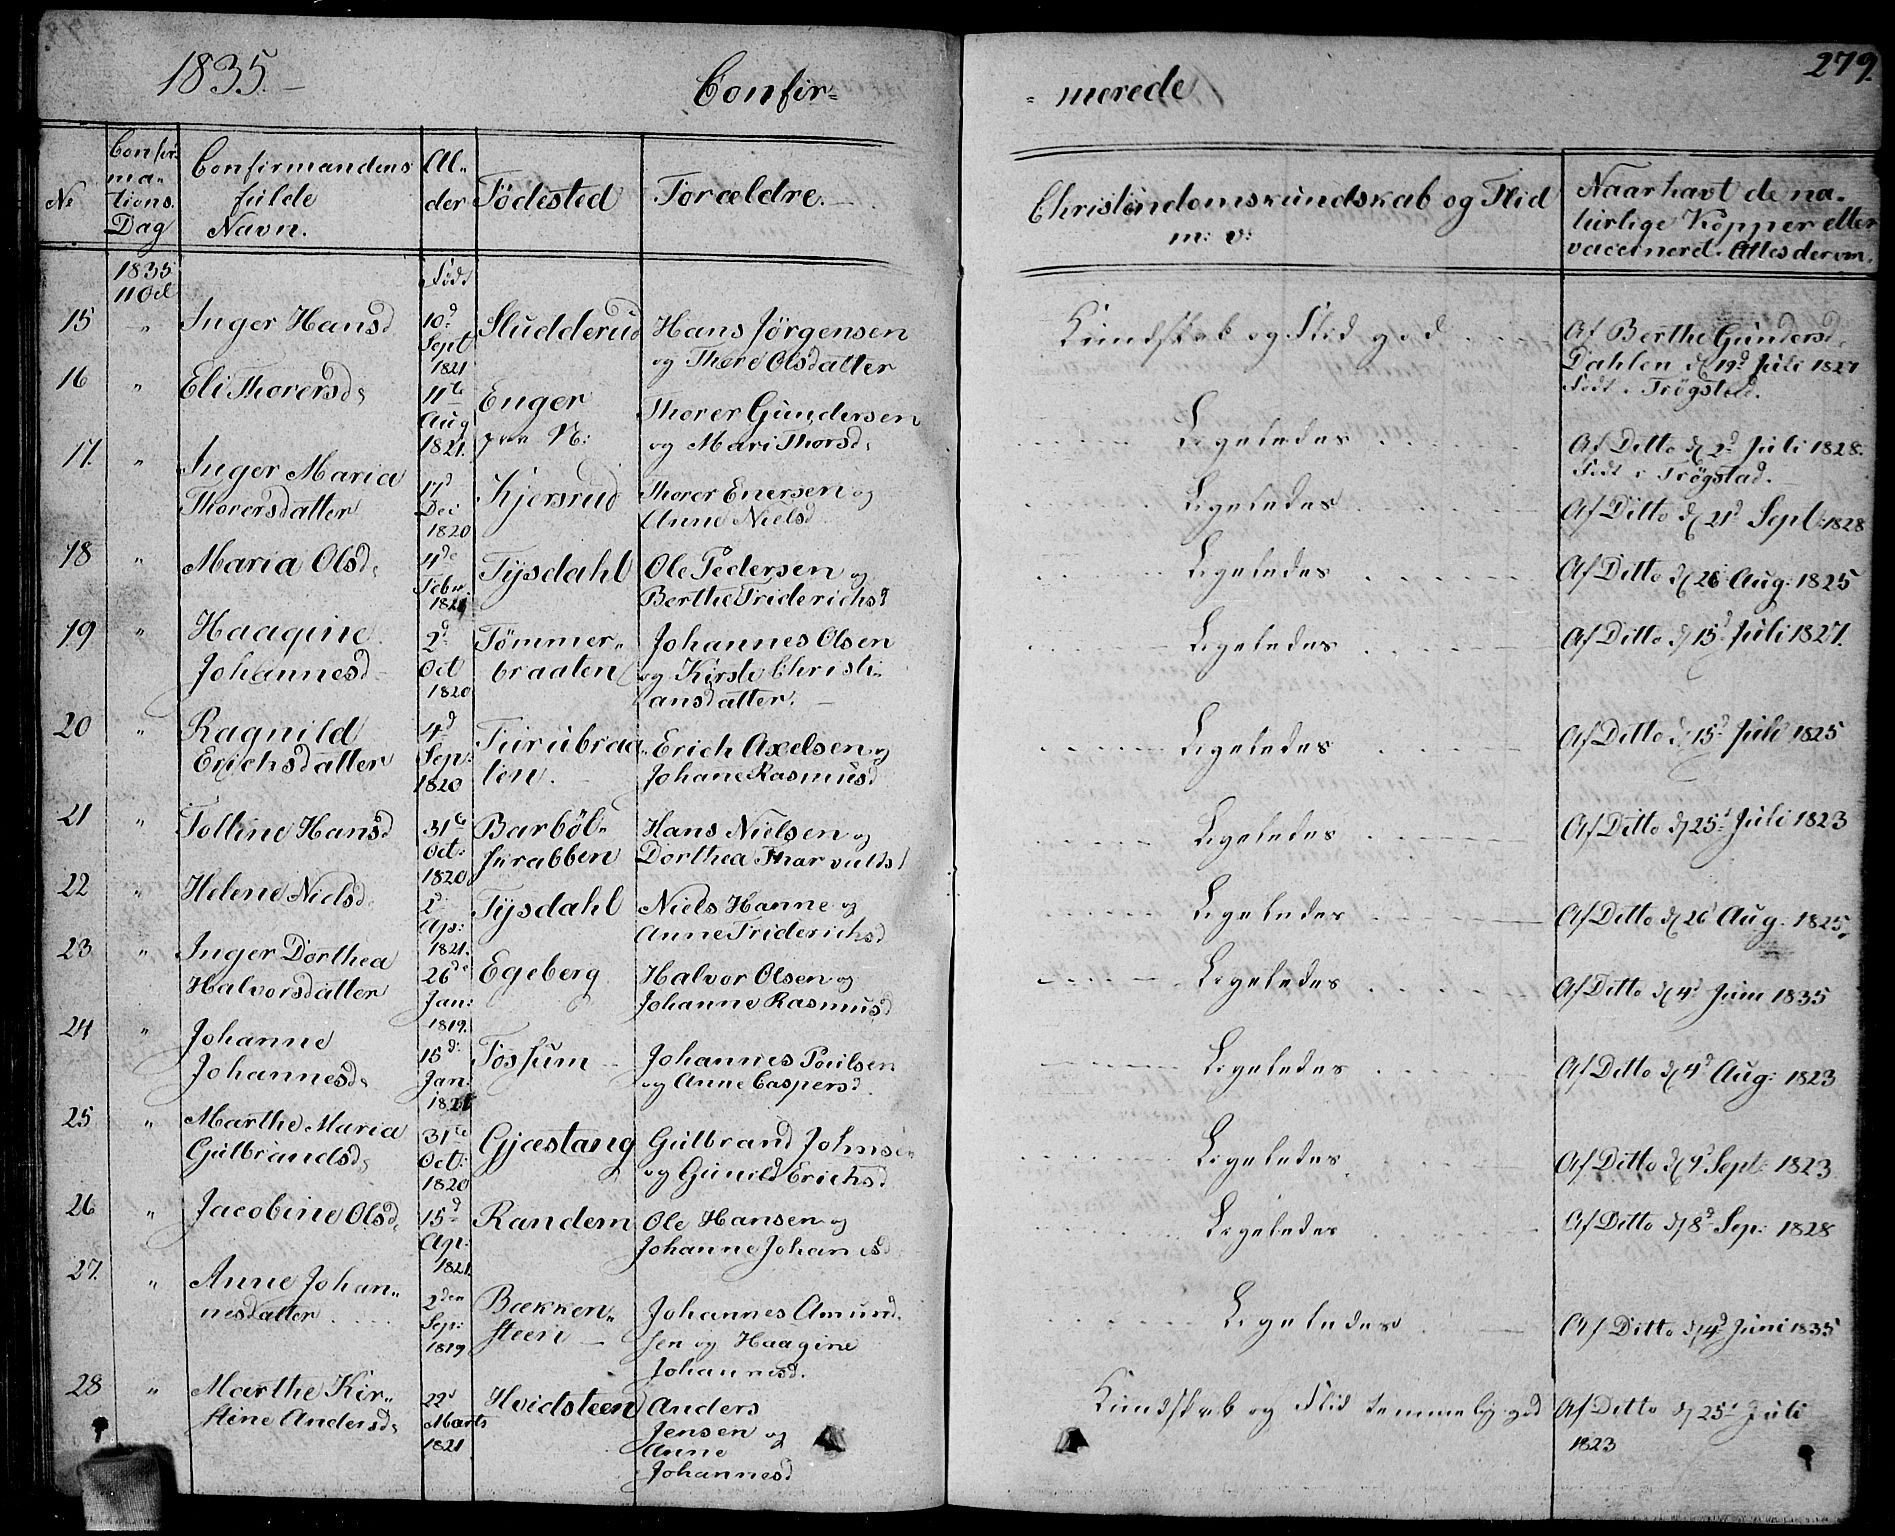 1835.
Confir=
= merede
279.
No
Confir-
ma-
tions.
Dag
Confirmandens
fulde
Navn.
Al-
der
Födested
Forældre.
Christendomskundskab og Flid
m: v:
Naar havt de na-
turlige Kopper eller
vaccinerd. Attest derom.
1835
11 Oct
Födt
15 " Inger Hansd 10d Sept 1821 Sludderud Hans Jörgensen
og Thore Olsdatter
Kundskab og Flid god
Af Berthe Gundersd.
Dahlen d 19d Juli 1827
Födt i Trögstad.
16 " Eli Thorersd: 11te Aug 1821. Enger
Thorer Gundersen
og Mari Thorsd:
Ligeledes
Af Ditto d 2d Juli 1828.
Födt i Trögstad.
17. " Inger Maria
Thorersdatter
17d Dec 1820 Kjersrud Thorer Enersen og
Anne Nielsd
Ligeledes
Af Ditto d 21d Sept: 1828
18 " Maria Olsd: Febr: Tysdahl Ole Pedersen og
Berthe Friderichsd
Ligeledes
Af Ditto d 26 Aug: 1825
19 " Haagine
Johannesd
2d Oct 1820 Tömmer-
braaten
Johannes Olsen
og Kirsti Christi-
ansdatter.
Ligeledes
Af Ditto d 15d Juli 1827.
20 " Ragnild
Erichsdatter
4d Sep: 1820 Furubraa-
ten.
Erich Axelsen og
Johane Rasmusd
Ligeledes
Af Ditto d 15d Juli 1825
21 " Toltine Hansd 31te Oct: 1820 Barböl-
Hans Nielsen og
Dorthea Tharvaldsd
Ligeledes
Af Ditto d 25d Juli 1823
22 " Helene Nielsd: 2d Ap: 1821. Tysdahl Niels Hanne og
Anne Friderichsd
Ligeledes
Af Ditto d 26d Aug: 1825.
23 " Inger Dorthea
Halvorsdatter
26de Jan: 1819. Egeberg Halvor Olsen og
Johanne Rasmusd
Ligeledes
Af Ditto d 4d Juni 1835
24 " Johanne
Johannesd:
15d: Jan: 1821 Fossum Johannes Poulsen
og Anne Caspersd
Ligeledes
Af Ditto d 4d Aug: 1823
25 " Marthe Maria
Gulbrandsd:
31te Oct: 1820 Gjæstang Gulbrand Johns:
og Gunild Erichsd
Ligeledes
Af Ditto d 9d Sept: 1823
26 " Jacobine Olsd: 15d Ap: 1821. Randem Ole Hansen og
Johanne Johanesd
Ligeledes
Af Ditto d 8d Sep: 1828
27. " Anne Johan-
nesdatter
2den Sep: 1819 Bækken-
steen
Johannes Amund-
sen og Haagine
Johannesd.
Ligeledes
Af Ditto d 4d Juni 1835
28 " Marthe Kir-
stine Andersd:
22d Marts 1821 Hvidsteen Anders
Jensen og
Anne
Johannesd
Kundskab og Flid temmelig god
Af Ditto d 25d Juli
1823